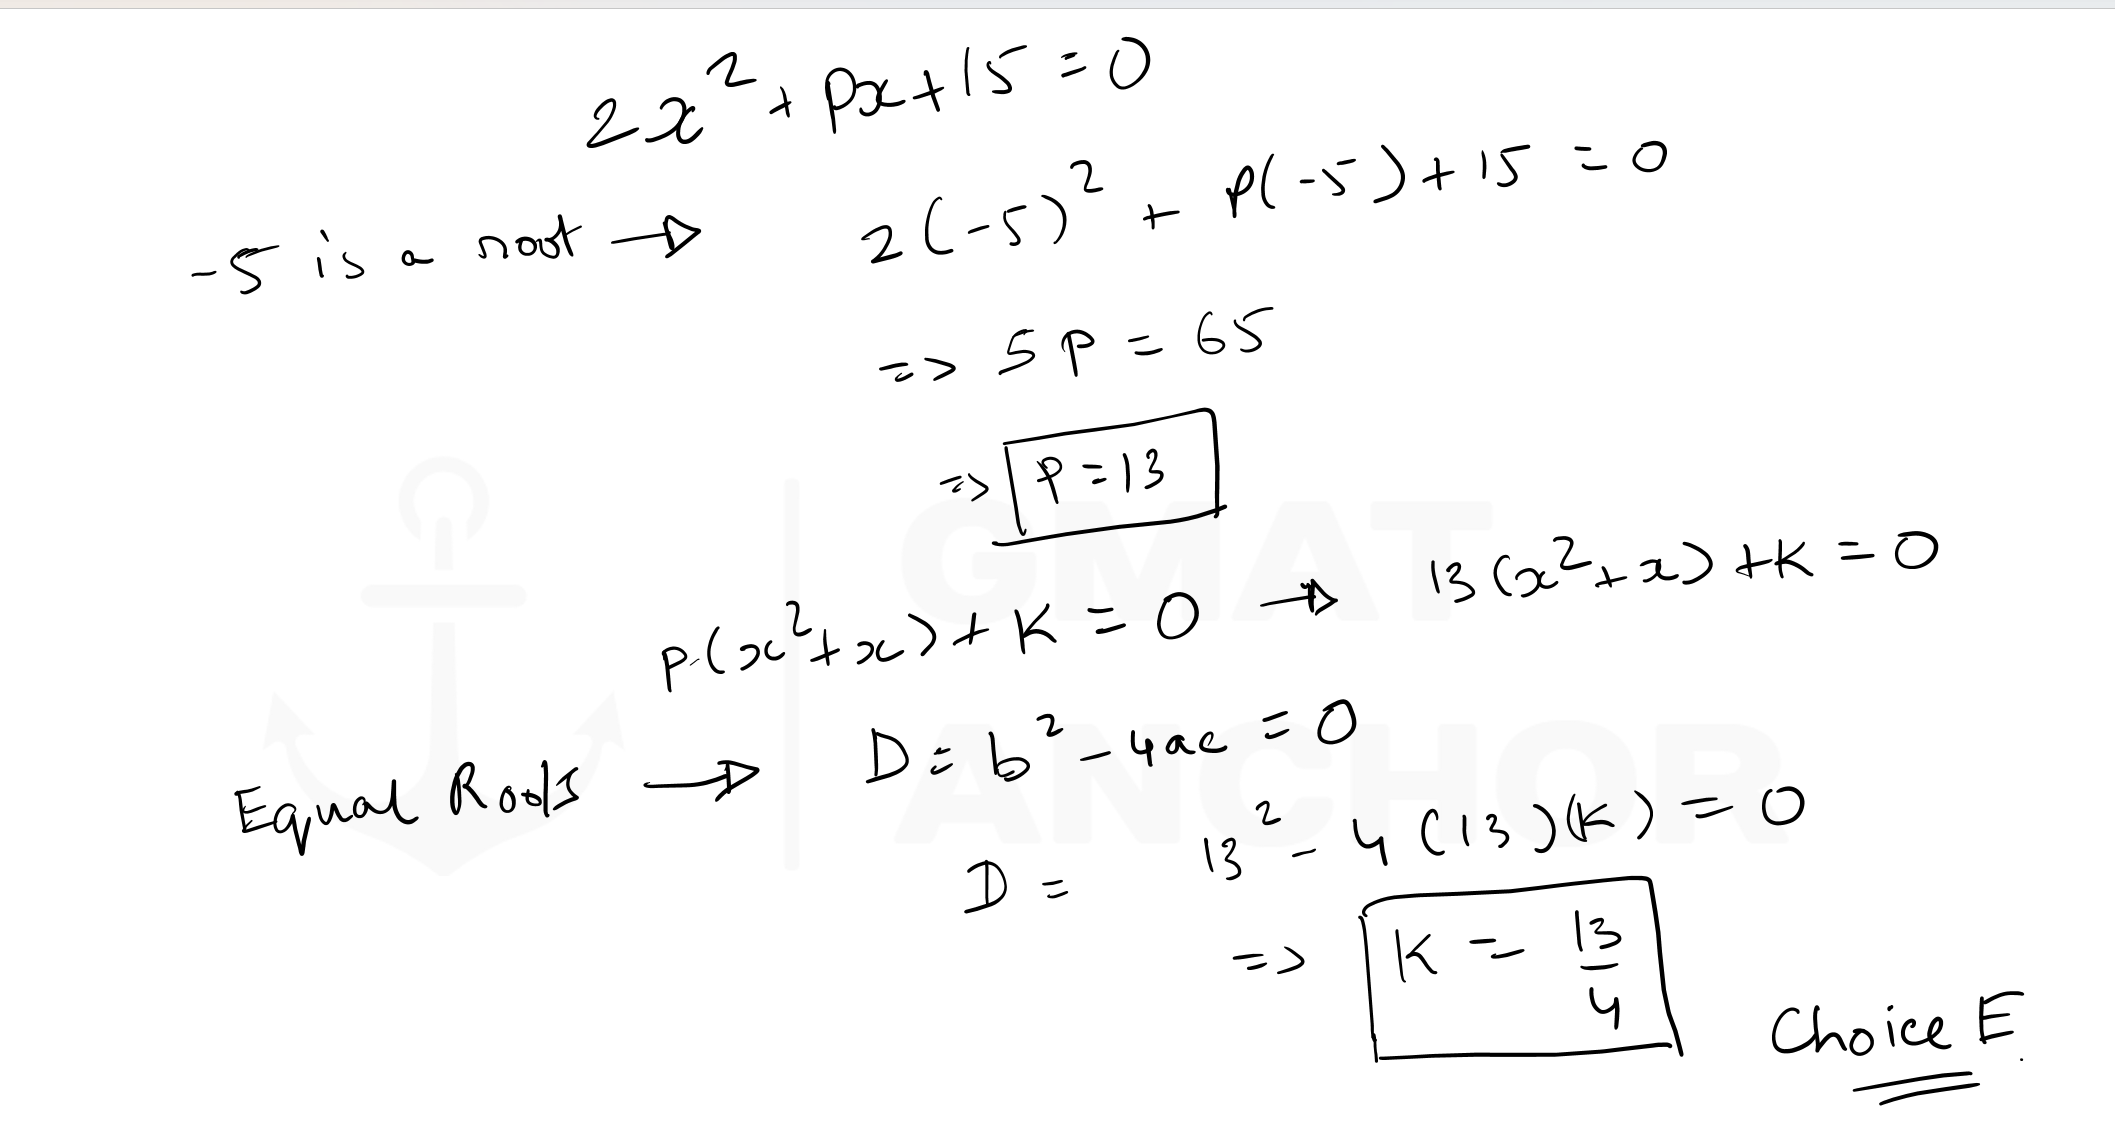 2x² + px + 15 = 0
-5 is a root → 2(-5)² + p(-5) + 15 = 0
=> 5p = 65
=> p = 13
p(x² + x) + K = 0 → 13(x² + x) + K = 0
Equal Roots → D = b² - 4ac = 0
D = 13² - 4(13)(K) = 0
=> K = 13/4
Choice E
GMAT
ANCHOR